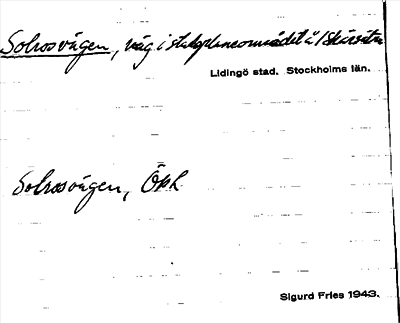 Solrosvägen, väg i stadsplaneområdet å Skärsätra
Lidingö stad. Stockholms län.
Solrosvägen, Öpk.
Sigurd Fries 1943.